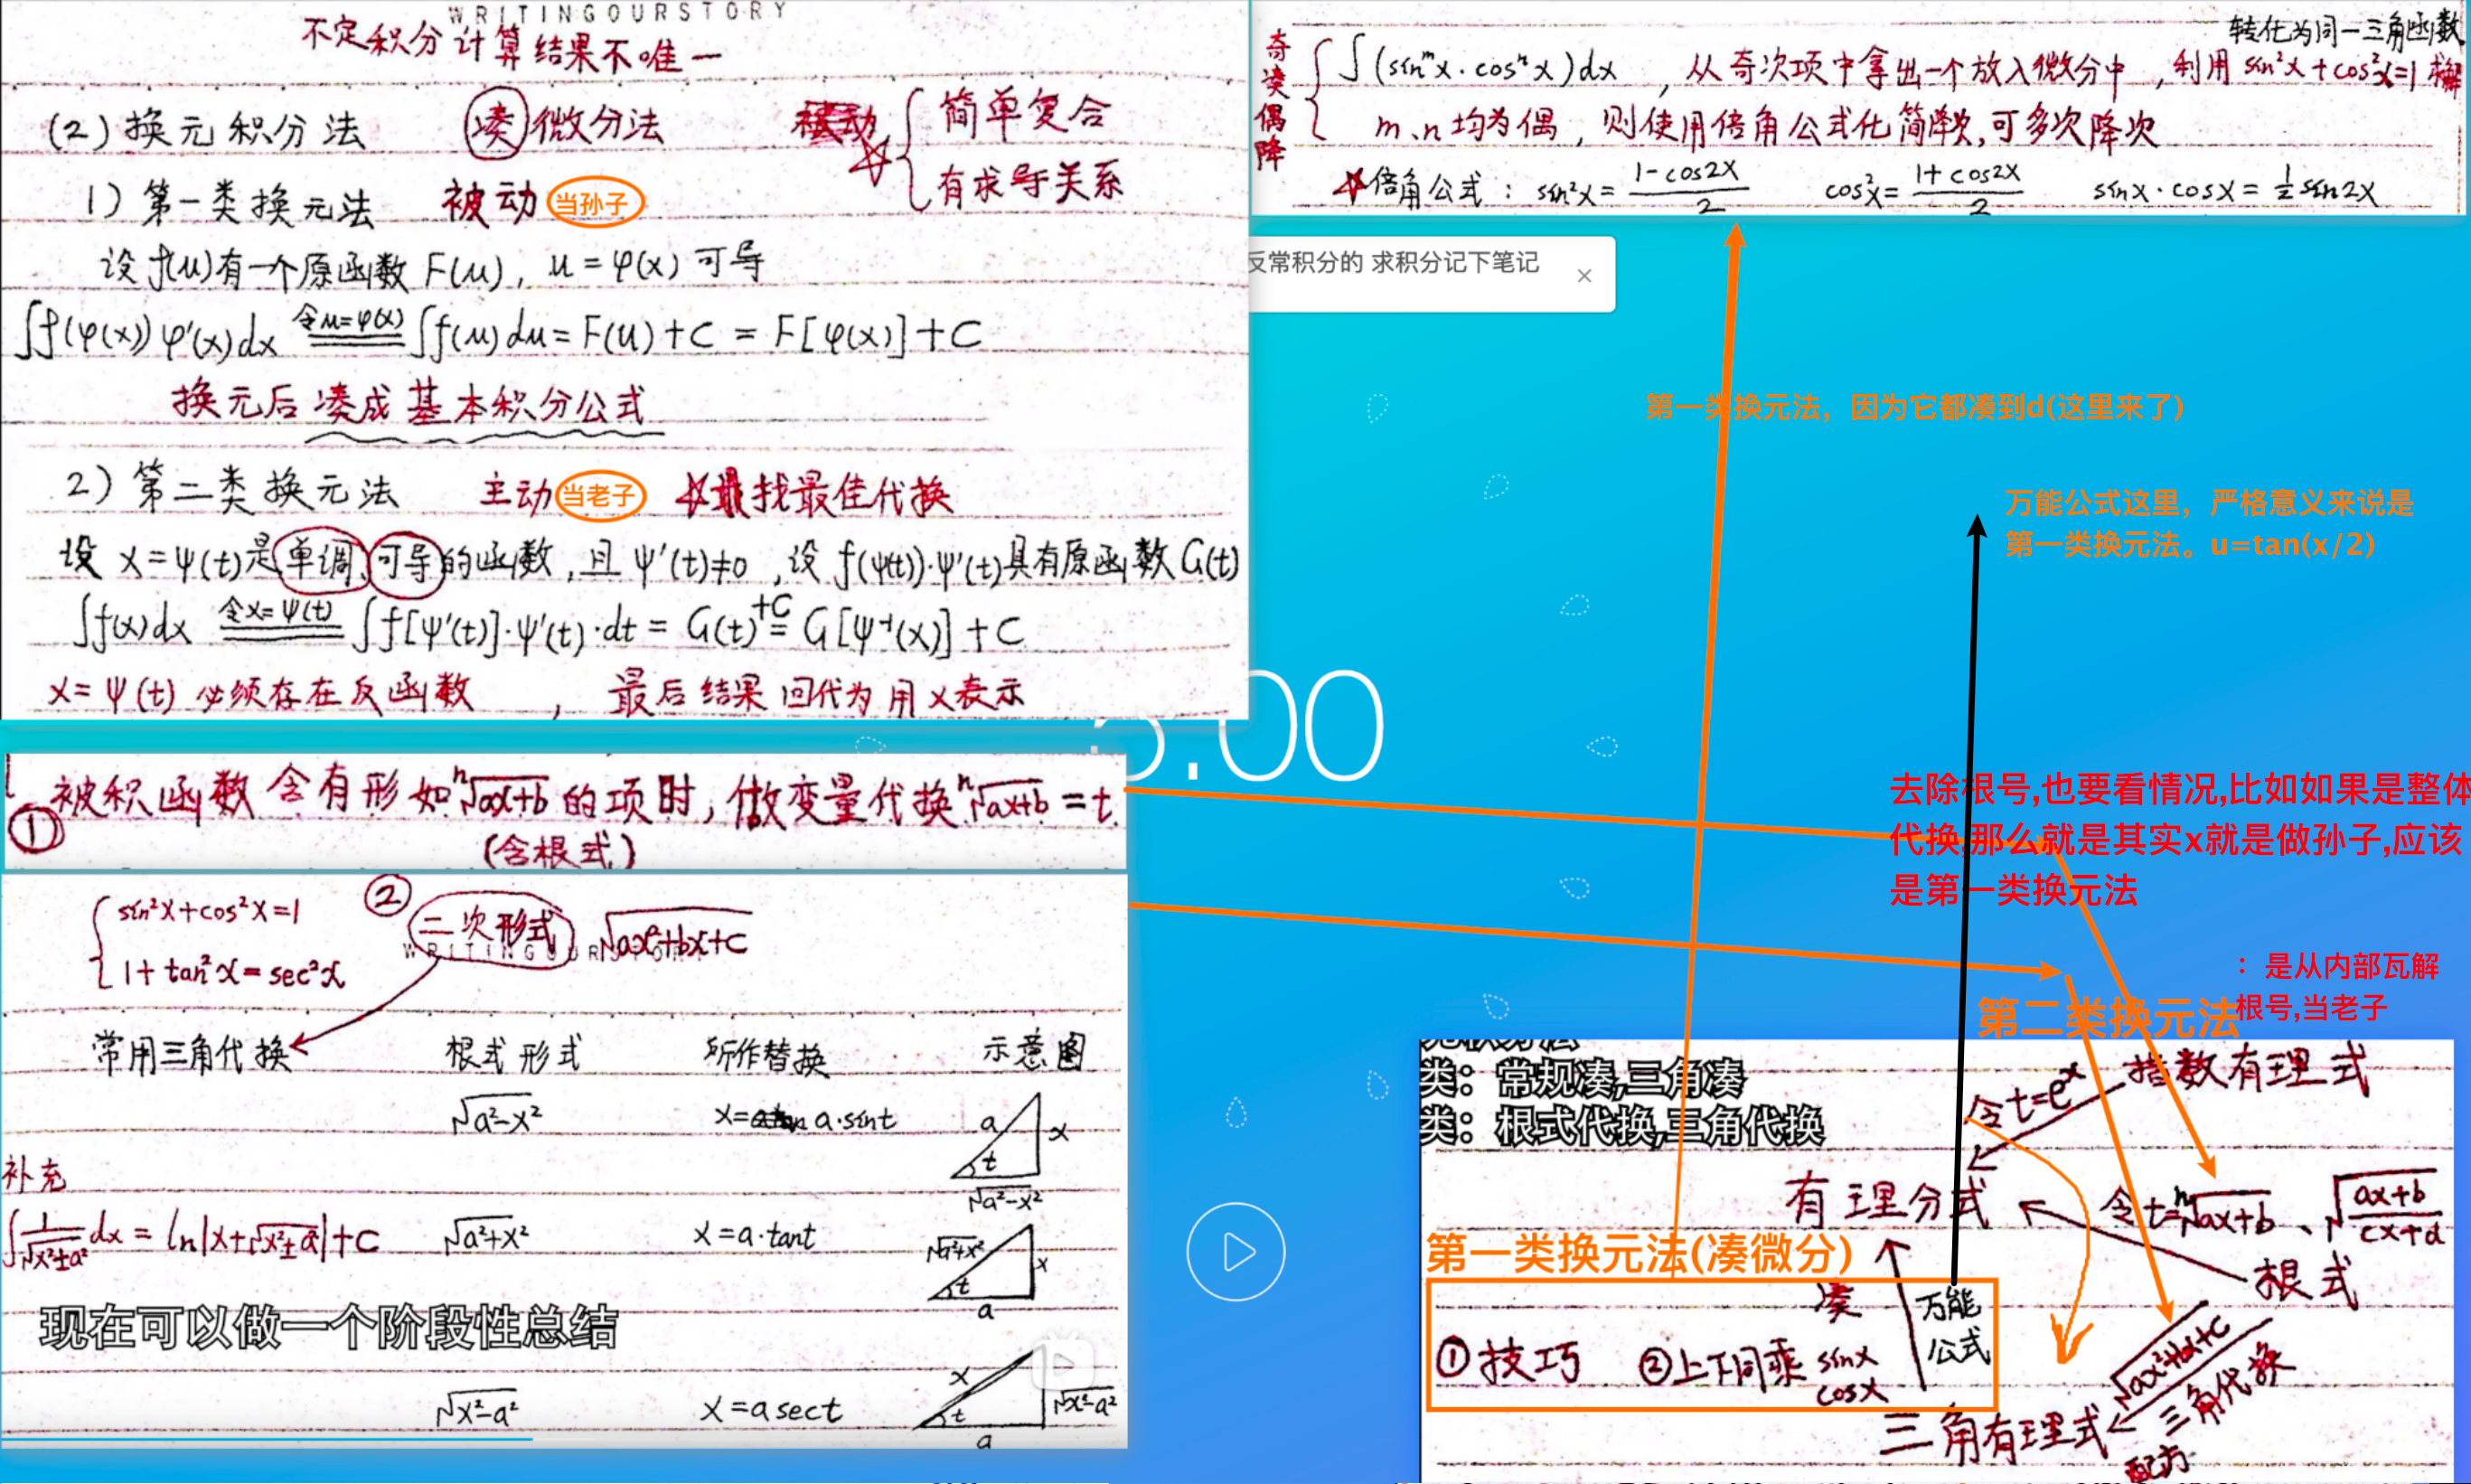 WRITINGOURSTORY
不定积分计算结果不唯一
(2)换元积分法 凑微分法 简单复合
有求导关系
1)第一类换元法 被动 当孙子
设f(u)有一个原函数F(u), u=φ(x)可导
∫f(φ(x))φ'(x)dx 令u=φ(x) ∫f(u)du=F(u)+C=F[φ(x)]+C
换元后凑成基本积分公式
2)第二类换元法 主动 当老子 找最佳代换
设x=ψ(t)是单调,可导的函数,且ψ'(t)≠0,设f(ψ(t))·ψ'(t)具有原函数G(t)
∫f(x)dx 令x=ψ(t) ∫f[ψ'(t)]·ψ'(t)·dt=G(t)+C=G[ψ⁻¹(x)]+C
x=ψ(t)必须存在反函数, 最后结果回代为用x表示
转化为同一三角函数
奇凑偶降
∫(sinᵐx·cosⁿx)dx ,从奇次项中拿出一个放入微分中,利用sin²x+cos²x=1
m、n均为偶,则使用倍角公式化简降次,可多次降次
倍角公式: sin²x=(1-cos2x)/2 cos²x=(1+cos2x)/2 sinx·cosx=½sin2x
反常积分的 求积分记下笔记 ×
第一类换元法，因为它都凑到d(这里来了)
万能公式这里，严格意义来说是
第一类换元法。u=tan(x/2)
:00
①被积函数含有形如ⁿ√(ax+b)的项时,做变量代换ⁿ√(ax+b)=t.
(含根式)
去除根号,也要看情况,比如如果是整体
代换,那么就是其实x就是做孙子,应该
是第一类换元法
sin²x+cos²x=1 ② 二次形式 √(ax²+bx+c)
1+tan²x=sec²x
WRITINGOUR
常用三角代换 根式形式 所作替换 示意图
√(a²-x²) x=a·sint a x t √(a²-x²)
补充
∫1/√(x²±a²)dx=ln|x+√(x²±a²)|+C √(a²+x²) x=a·tant √(a²+x²) x t a
现在可以做一个阶段性总结
√(x²-a²) x=asect x t √(x²-a²) a
：是从内部瓦解
根号,当老子
第二类换元法
类：常规凑,三角凑
类：根式代换,三角代换
令t=eˣ 指数有理式
有理分式 令t=ⁿ√(ax+b)、√((ax+b)/(cx+d))
第一类换元法(凑微分)
根式
凑 万能公式
①技巧 ②上下同乘 sinx cosx
√(ax²+bx+c)
三角代换
三角有理式
配方